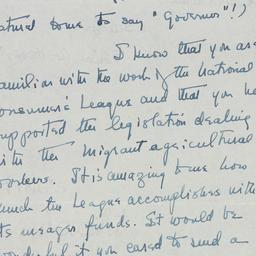 atural some to say "Governor"!)
I know that you are
amiliar with the work of the National
onsumers League and that you ha
upported the legislation dealing
ith the migrant agricultural
orkers. It is amazing to me how
much the League accomplishes with
ts meager funds. It would be
onderful if you cared to send a